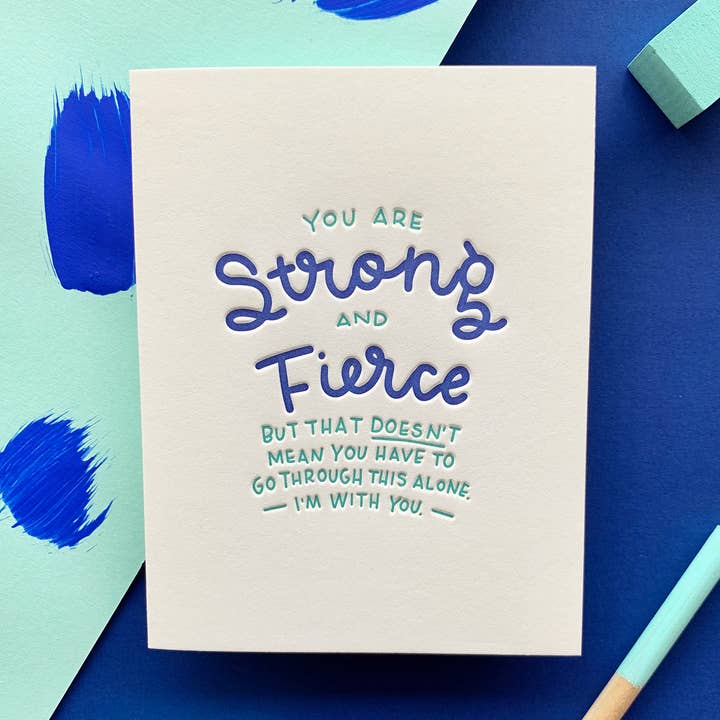 YOU ARE
Strong
AND
Fierce
BUT THAT DOESN'T
MEAN YOU HAVE TO
GO THROUGH THIS ALONE.
— I'M WITH YOU. —